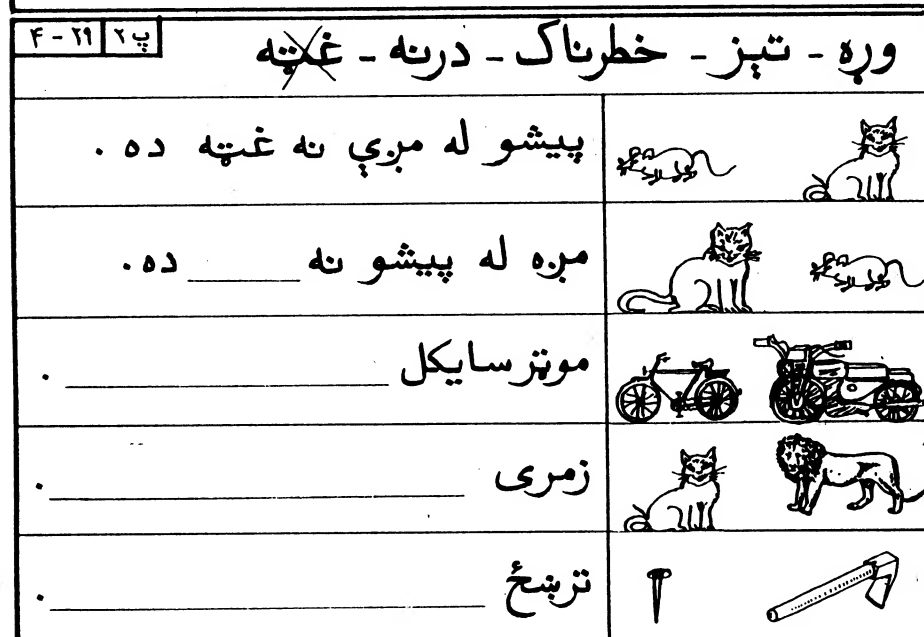 پ ۲ ۲۹ - ۴
وړه - تېز - خطرناک - درنه - غټه
پیشو له مږې نه غټه ده .
مږه له پیشو نه ______ ده .
موټر سایکل ____________ .
زمری ____________ .
تړښځ ____________ .